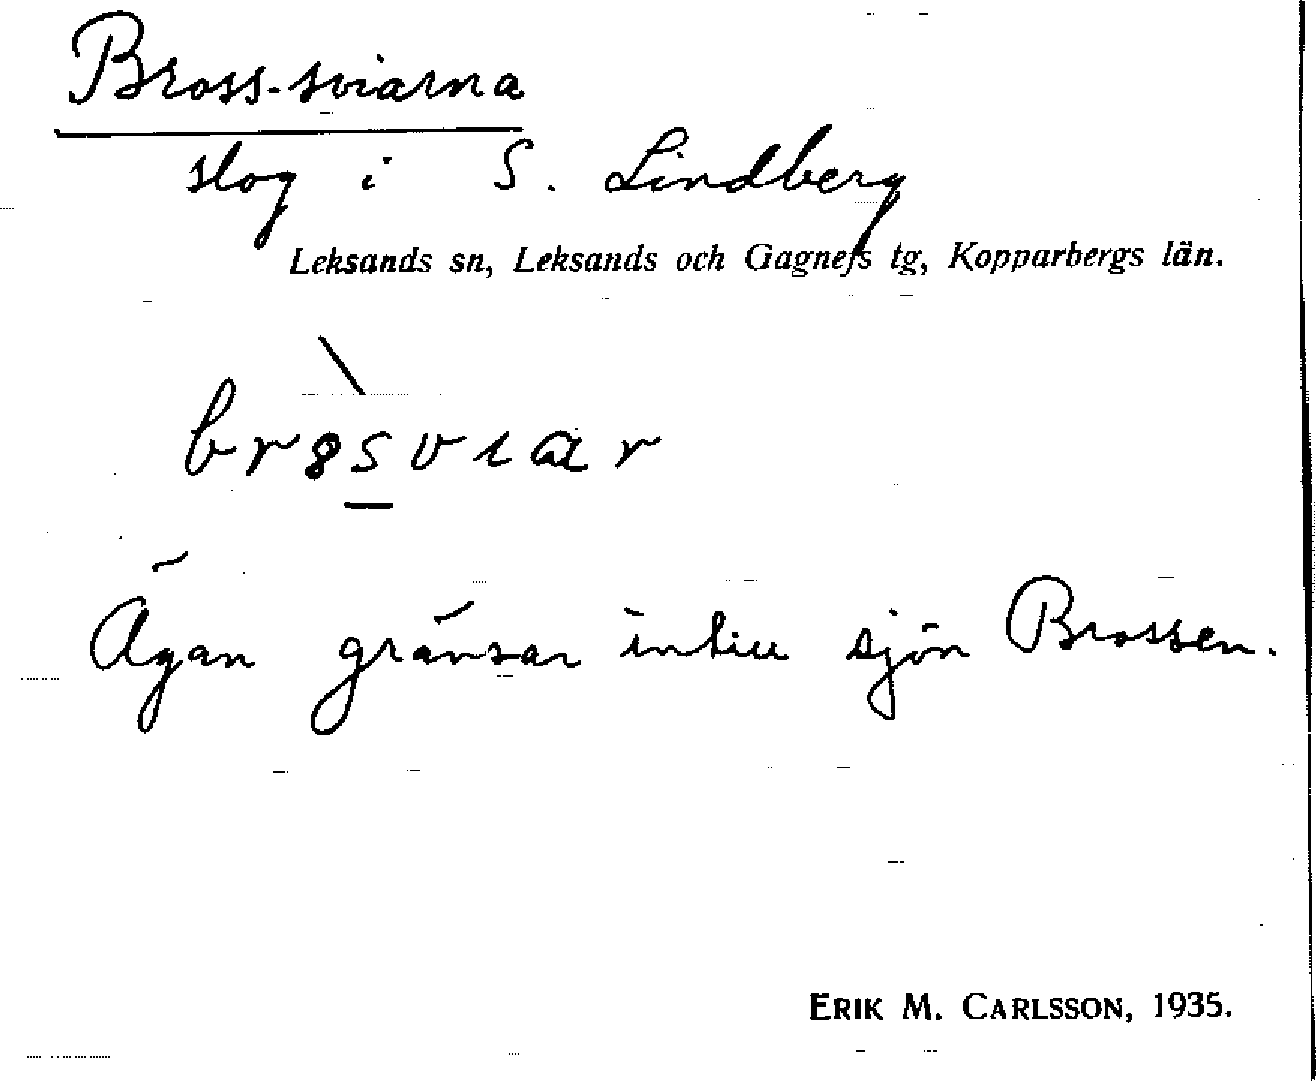 Bross-sviarna
slog i S. Lindberg
Leksands sn, Leksands och Gagnefs tg, Kopparbergs län.
Ägan gränsar intill sjön Brossen.
ERIK M. CARLSSON, 1935.